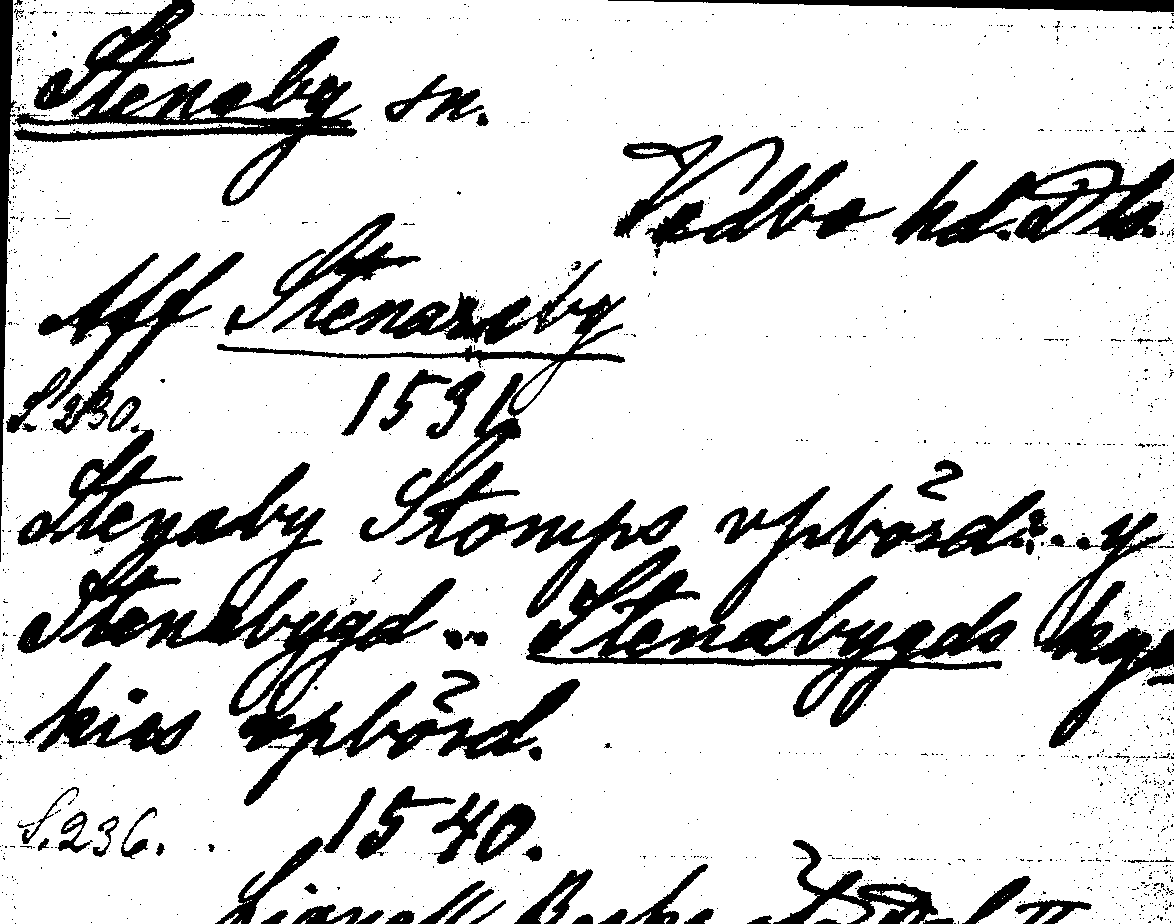 Steneby sn.
Vedbo hd. Dls.
Aff Stenarsby
S. 230. 1531.
Stenaby Stomps vpbörd: .. y
Stenabygd .. Stenabygds kyr
kies vpbörd.
S. 236. 1540.